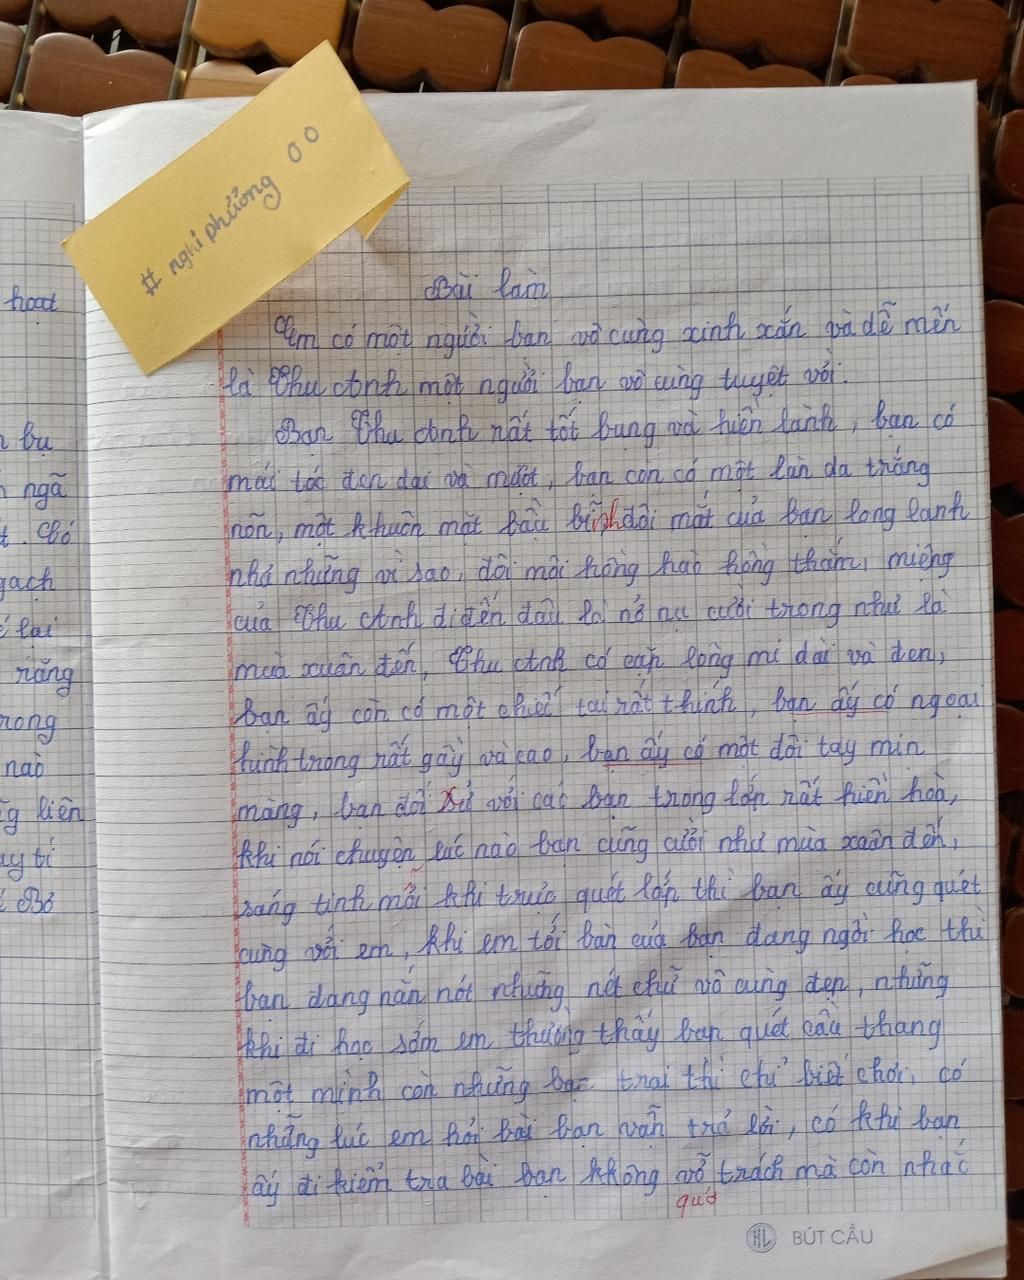 # nghi phương 00
hoạt
bụ
ngã
Có
gạch
lại
răng
trong
nào
liên
Bó
Bài làm
Em có một người bạn vô cùng xinh xắn và dễ mến
là Thu Anh một người bạn vô cùng tuyệt vời.
Bạn Thu Anh rất tốt bụng và hiền lành, bạn có
mái tóc đen dài và mượt, bạn còn có một làn da trắng
nõn, một khuôn mặt bầu bĩnh đôi mắt của bạn long lanh
như những vì sao, đôi môi hồng hào hồng thắm, miệng
của Thu Anh đi đến đâu là nở nụ cười trong như là
mùa xuân đến, Thu Anh có cặp lông mi dài và đen,
bạn ấy còn có một chiếc tai rất thính, bạn ấy có ngoại
hình trong rất gầy và cao, bạn ấy có một đôi tay mịn
màng, bạn đối xử với các bạn trong lớp rất hiền hoà,
khi nói chuyện lúc nào bạn cũng cười như mùa xuân đến,
sáng tinh mơ khi trực quét lớp thì bạn ấy cũng quét
cùng với em, khi em tới bàn của bạn đang ngồi học thì
bạn đang nắn nót những nét chữ vô cùng đẹp, những
khi đi học sớm em thường thấy bạn quét cầu thang
một mình còn những bạn trai thì chỉ biết chơi, có
những lúc em hỏi bài bạn vẫn trả lời, có khi bạn
ấy đi kiểm tra bài bạn không vỡ trách mà còn nhắc
quở
HL BÚT CẦU